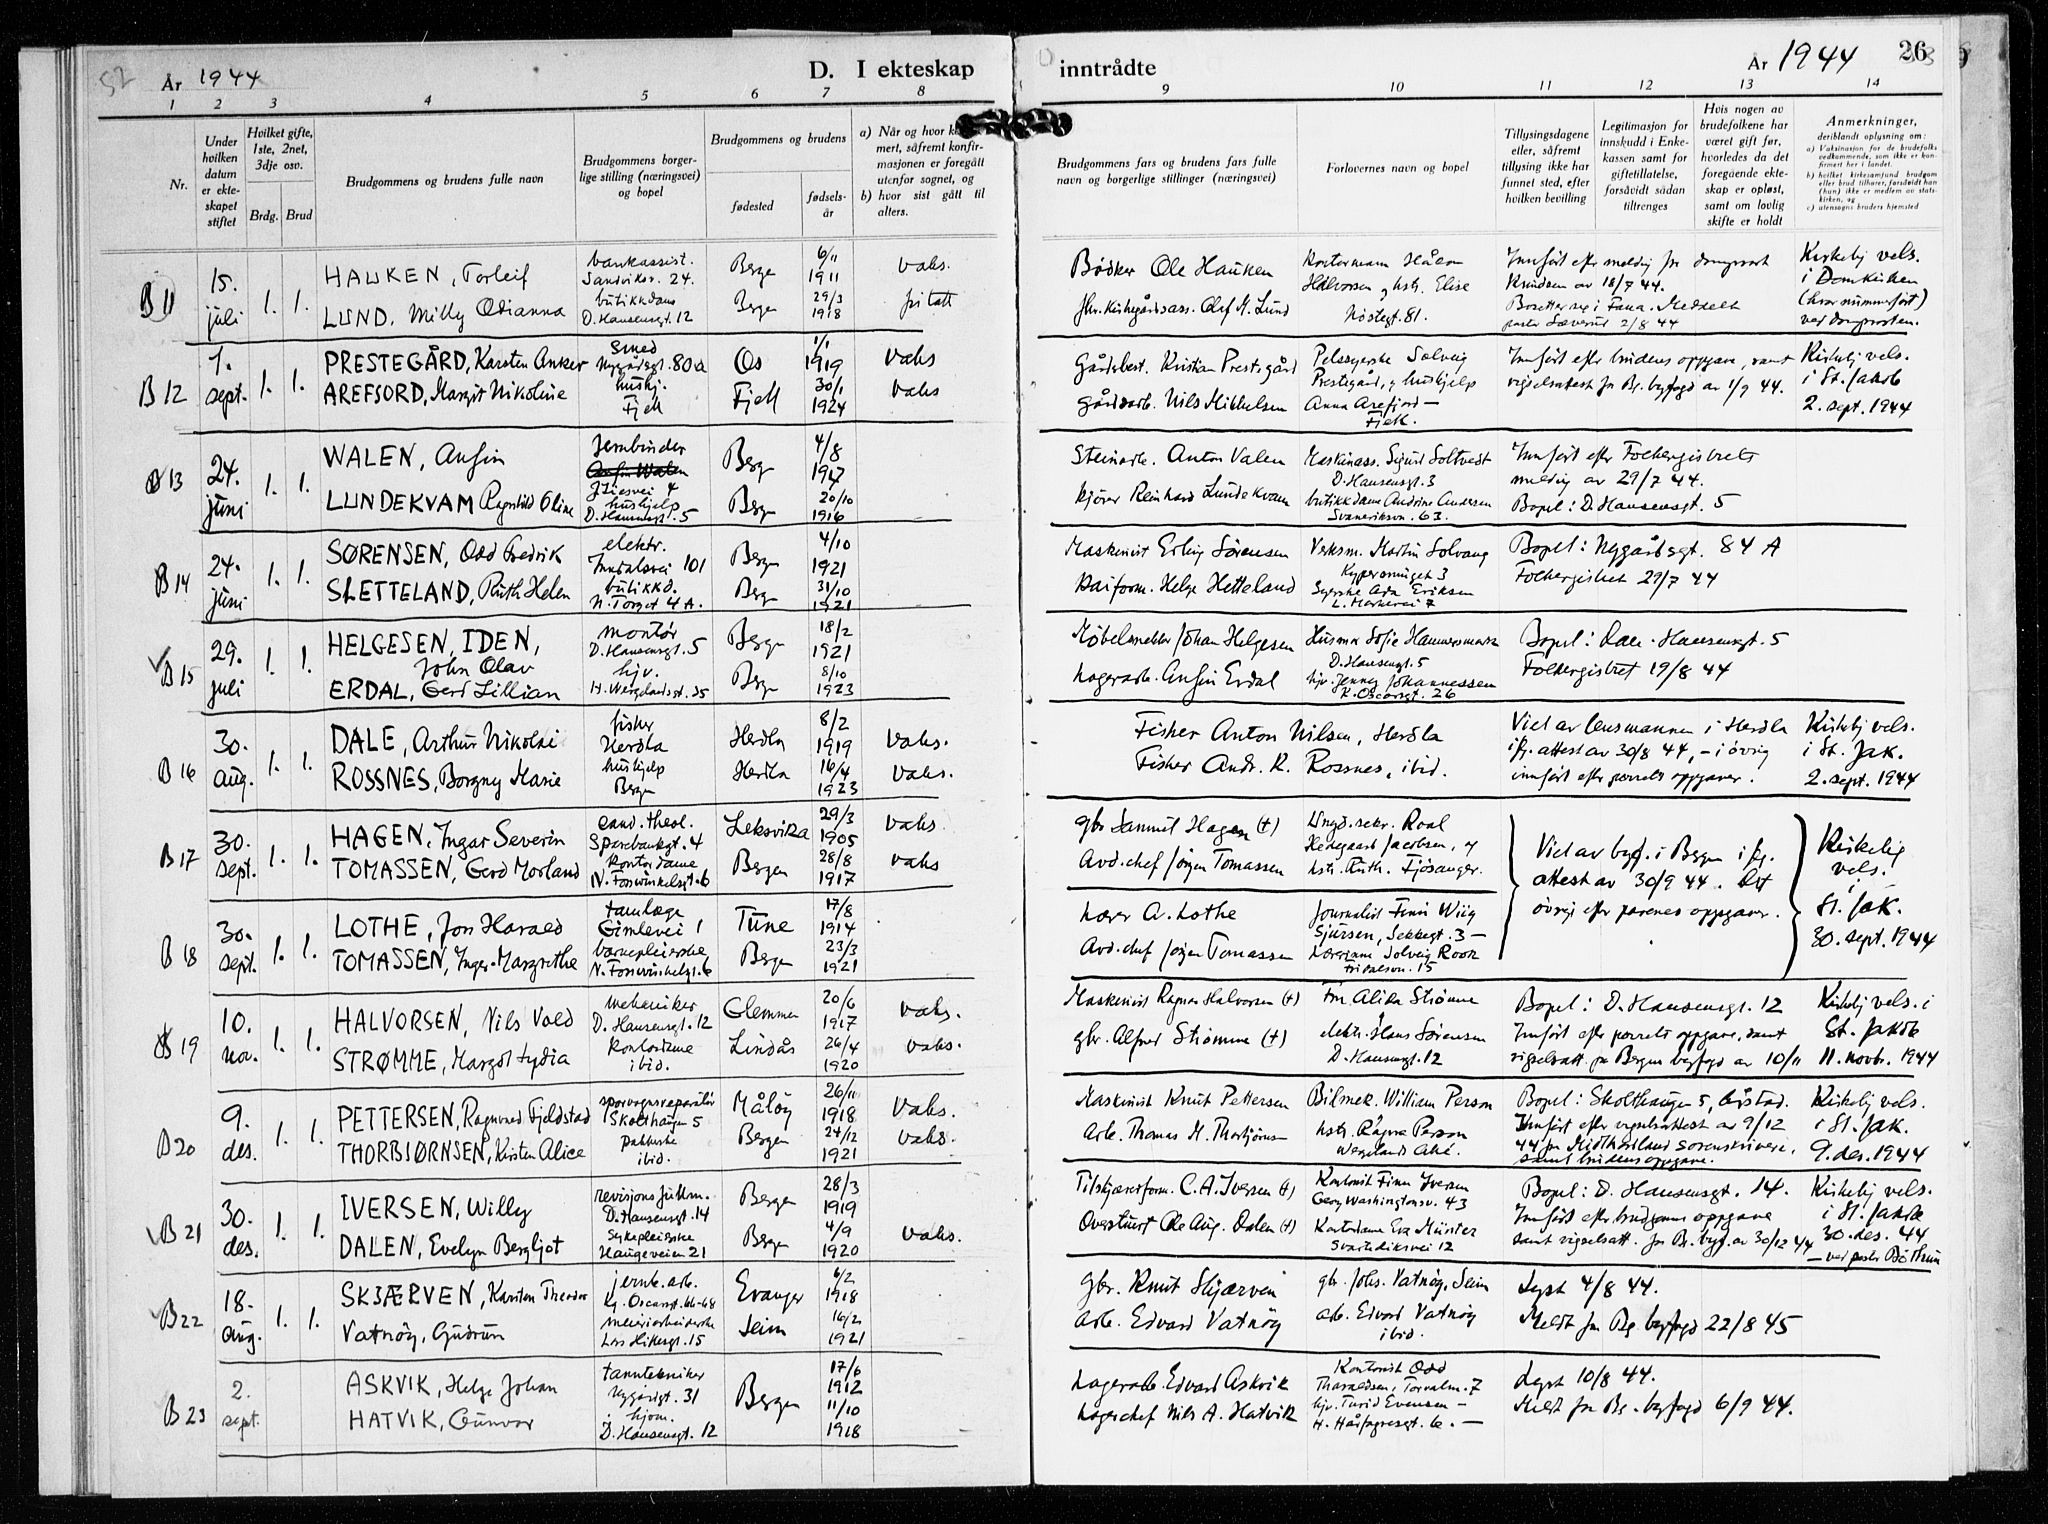 52
År 1944
D. I ekteskap
inntrådte
År 1944
26
1 2 3 4 5 6 7 8
9 10 11 12 13 14
Nr.
Under hvilken datum er ekteskapet stiftet
Hvilket gifte, 1ste, 2net, 3dje osv.
Brdg. Brud
Brudgommens og brudens fulle navn
Brudgommens borgerlige stilling (næringsvei) og bopel
Brudgommens og brudens
fødested
fødselsår
a) Når og hvor
mert, såfremt konfirmasjonen er foregått utenfor sognet, og
b) hvor sist gått til alters.
Brudgommens fars og brudens fars fulle navn og borgerlige stillinger (næringsvei)
Forlovernes navn og bopel
Tillysingsdagene eller, såfremt tillysing ikke har funnet sted, efter hvilken bevilling
Legitimasjon for innskudd i Enkekassen samt for giftetillatelse, forsåvidt sådan tiltrenges
Hvis nogen av brudefolkene har været gift før, hvorledes da det foregående ekteskap er opløst, samt om lovlig skifte er holdt
Anmerkninger,
deriblandt oplysning om:
a) Vaksinasjon for de brudefolks vedkommende, som ikke er konfirmert her i landet.
b) hvilket kirkesamfund brudgom eller brud tilhører, forsåvidt han (hun) ikke er medlem av statskirken, og
c) utensogns bruders hjemsted
B 11
15. juli
1. 1.
HAUKEN, Torleif
LUND, Milly Odianna
bankassist.
Sandviksv. 24.
butikkdame
D. Hansensgt. 12
Bergen
Bergen
6/11 1911
29/3 1918
Vaks.
Bødker Ole Hauken
Kirkegårdsass. Olaf M. Lund
Halvorsen og hstr. Elise
Nøstegt. 81.
Innført efter melding fra domprost
Knudsen av 18/7 44.
Bosetter seg i Fana. Meddelt
pastor Sæverud 2/8 44
Kirkelig vels.
i Domkirken
(hvor nummerført)
ved domprosten.
B 12
1. sept.
1. 1.
PRESTEGÅRD, Karsten Anker
AREFJORD, Margit Nikoline
Smed
Nygårdsgt. 80a
hushj.
Fjell
Os
Fjell
1/1 1919
30/1 1924
Vaks
Vaks
Gårdbest. Kristian Prestegård
Gårdsarb. Nils Mikkelsen
Pelssyerske Solveig
Prestegård, og hushjelp
Anna Arefjord —
Fjell.
Innført efter brudens oppgave, samt
vigselsattest fra Bg. byfogd av 1/9 44.
Kirkelig vels.
i St. Jakob
2. sept. 1944
B 13
24. juni
1. 1.
WALEN, Anfin
LUNDEKVAM Ragnhild Oline
Jernbinder
J. Liesvei 4
hushjelp
D. Hansensgt. 5
Bergen
Bergen
4/8 1917
20/10 1916
Steinarb. Anton Valen
Kjører Reinhard Lundekvam
Maskinass. Sigurd Soltvedt
D. Hansensgt. 3
butikkdame Andrine Andersen
63.
Innført efter Folkergistrets
melding av 29/7 44.
Bopel: D. Hansensgt. 5
B 14
24. juni
1. 1.
SØRENSEN, Odd Fredrik
SLETTELAND, Ruth Helen
elektr.
Inndalsvei 101
butikkd.
N. Torget 4 A.
Bergen
Bergen
4/10 1921
31/10 1921
Maskinist Erling Sørensen
Kaiform. Helge Hetteland
Verksm. Martin Solvang
3
Syerske Ada Eriksen
L. Markevei 7
Bopel: Nygårdsgt. 84 A
Folkergistret 29/7 44
B 15
29. juli
1. 1.
HELGESEN, IDEN,
John Olav
ERDAL, Gerd Lillian
montør
D. Hansensgt. 5
hjv.
H. Wergelandsgt. 35
Bergen
Bergen
18/2 1921
8/10 1923
Møbelsnekker Johan Helgesen
Lagerarb. Anfin Erdal
Husmor Sofie Hammersmark
D. Hansensgt. 5
hjv. Jenny Johannessen
K. Oscarsgt. 26
Bopel: Dan. Hansensgt. 5
Folkergistret 19/8 44
B 16
30. aug.
1. 1.
DALE, Arthur Nikolai
ROSSNES, Borgny Marie
fisker
Herdla
hushjelp
Bergen
Herdla
Herdla
8/2 1919
16/4 1923
Vaks.
Vaks.
Fisker Anton Nilsen, Herdla
Fisker Andr. K. Rossnes, ibid.
Viet av lensmannen i Herdla
ifg. attest av 30/8 44, — i øvrig
innført efter parrets oppgaver.
Kirkelig vels.
i St. Jak.
2. sept. 1944
B 17
30. sept.
1. 1.
HAGEN, Ingar Severin
TOMASSEN, Gerd Morland
cand. theol.
Sparebankgt. 4
Kontordame
N. Forswinkelsgt. 6
Leksvika
Bergen
29/3 1905
28/8 1917
Vaks
Vaks
Gbr Samuel Hagen (+)
Avd.chef Jørgen Tomassen
Ungd.sekr. Roal
Hedegaard Jacobsen, og
hstr. Ruth. Fjøsanger.
Viet av byf. i Bergen ifg.
attest av 30/9 44. Det
øvrige efter parenes oppgaver.
Kirkelig
vels.
i
St. Jak.
30. sept. 1944
B 18
30. sept.
1. 1.
LOTHE, Jon Harald
TOMASSEN, Inger-Margrethe
tannlæge
Gimlevei 1
barnepleierske
N. Forswinkelsgt. 6
Tune
Bergen
17/8 1914
23/3 1921
Lærer A. Lothe
Avd.chef Jørgen Tomassen
Journalist Finn Wiig
Sjursen, 3 —
Lærerinne Solveig Rook
15
B 19
10. nov.
1. 1.
HALVORSEN, Nils Vold
STRØMME, Margot Lydia
mekaniker
D. Hansensgt. 12
Kontordame
ibid.
Glemmen
Lindås
20/6 1917
26/4 1920
Vaks.
Vaks.
Maskinist Ragnar Halvorsen (+)
gbr. Alfred Strømme (+)
Frk. Alida Strømme
elektr. Hans Sørensen
D. Hansensgt. 12
Bopel: D. Hansensgt. 12
Innført efter parrets oppgave, samt
vigselsatt. fra Bergen byfogd av 10/11
Kirkelig vels. i
St. Jakob
11. novb. 1944
B 20
9. des.
1. 1.
PETTERSEN, Ragnvald Fjeldstad
THORBIØRNSEN, Kirsten Alice
sporvognsreparatør
Skolthaugen 5
pakkerske
ibid.
Måløy
Bergen
26/11 1918
24/12 1921
Vaks.
Vaks.
Maskinist Knut Pettersen
Arb. Thomas M. Thorbjørnsen
Bilmek. William Person
hstr. Ragna Person
Wergelands Allé.
Bopel: Skolthaugen 5, Årstad.
Innført efter vigselsattest av 9/12
44 fra Midthordland sorenskriveri,
samt brudens oppgave.
Kirkelig vels.
i St. Jak.
9. des. 1944
B 21
30. des.
1. 1.
IVERSEN, Willy
DALEN, Evelyn Bergljot
revisjonsfullm.
D. Hansensgt. 14
Sykepleierske
Haugeveien 21
Bergen
Bergen
28/3 1919
4/9 1920
Vaks.
Tilskjærerform. C. A. Iversen (+)
Overstuert Ole Aug. Dalen (+)
Kontorist Finn Iversen
Georg Washingtonsv. 43
Kontordame Eva Münster
Svartediksvei 12
Bopel: D. Hansensgt. 14.
Innført efter brudgoms oppgave
samt vigselsatt. fra Bg. byf. av 30/12 44
Kirkelig vels.
i St. Jakob
30. des. 44
— ved pastor Bøthun
B 22
18. aug.
1. 1.
SKJÆRVEN, Karsten Theodor
Vatnøy, Gudrun
jernb. arb.
Kg. Oscarsgt. 66-68
meieriarbeiderske
Lars Hillesgt. 15
Evanger
Seim
6/2 1918
16/2 1921
gbr. Knut Skjærven
Arb. Edvard Vatnøy
gbr. Johs. Vatnøy, Seim
arb. Edvard Vatnøy
ibid.
Lyst 4/8 44.
Meldt fra Bg. byfogd 22/8 45
B 23
2. sept.
ASKVIK, Helge Johan
HATVIK, Gunvor
tanntekniker
Nygårdsgt. 31
hjem.
D. Hansensgt. 12
Bergen
17/6 1912
11/10 1918
Lagerarb. Edvard Askvik
Lagerchef Nils A. Hatvik
Kontorist Odd
Tharaldsen, Torvalm. 7
hjv. Turid Evensen —
H. Hårfagresgt. 6. —
Lyst 10/8 44.
Meldt fra Bg. byfogd 6/9 44.